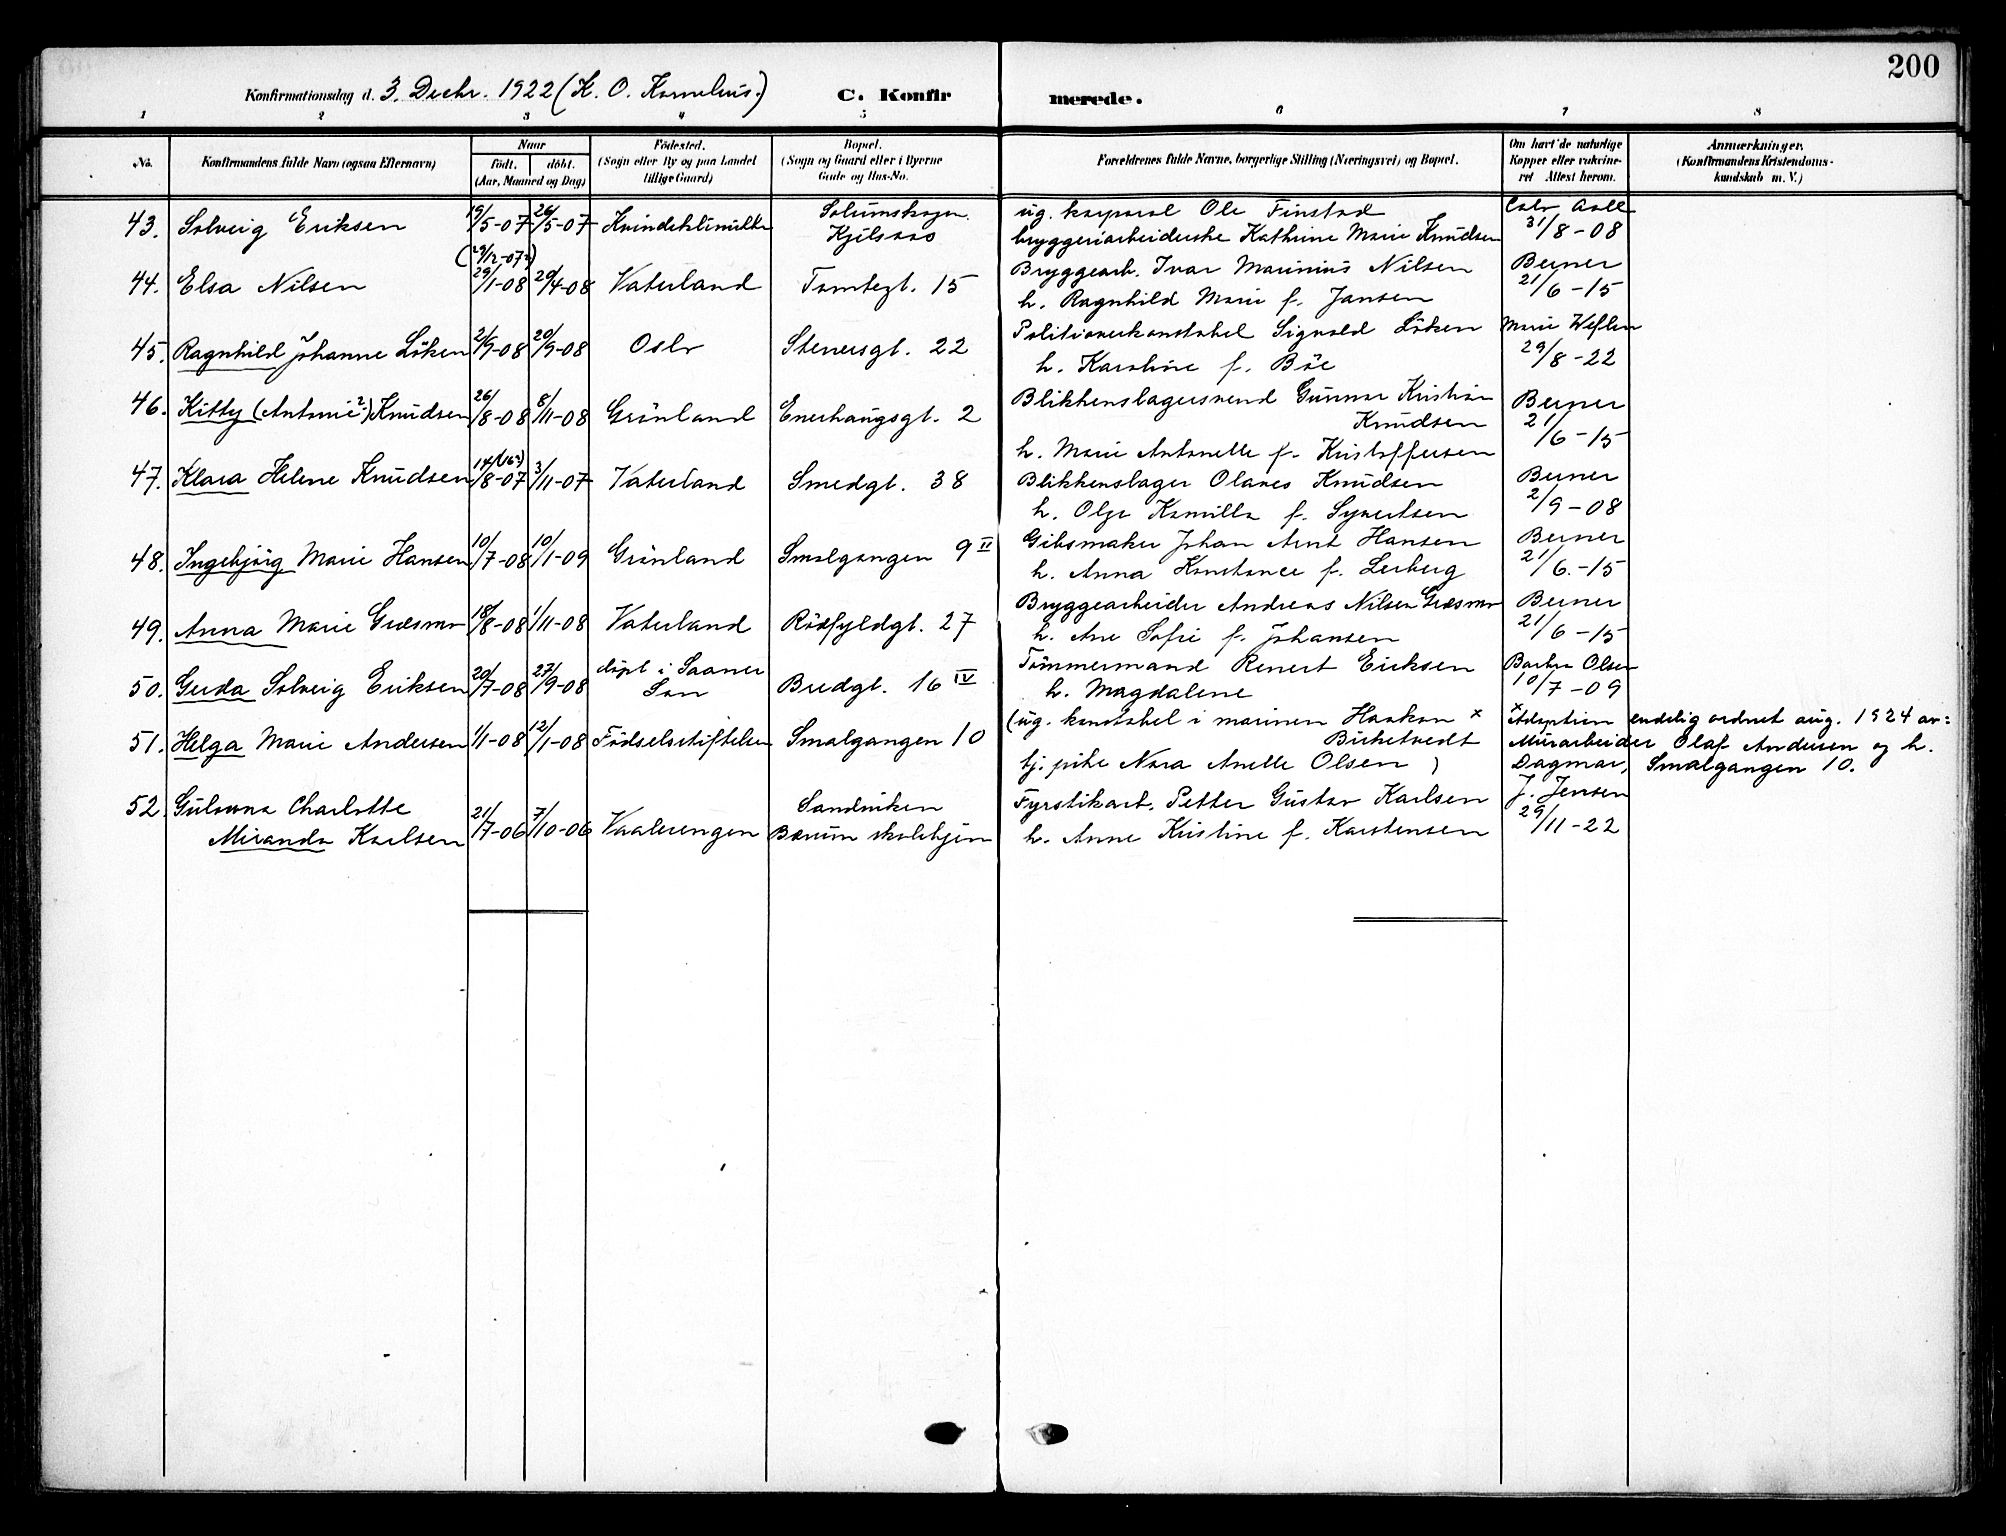 200
Konfirmationsdag d. 3. Decbr. 1922 (K. O. Kornelius.) C. Konfirmerede.
1 2 3 4 5 6 7 8
No. Konfirmandens fulde Navn (ogsaa Efternavn) Naar födt. döbt. (Aar, Maaned og Dag) Födested. (Sogn eller By og paa Landet tillige Gaard) Bopæl. (Sogn og Gaard eller i Byerne Gade og Hus-No. Forældrenes fulde Navne, borgerlige Stilling (Næringsvei) og Bopæl. Om havt de naturlige Kopper eller vakcineret Attest herom. Anmærkninger. (Konfirmandens Kristendomskundskab m. V.)
43. Solveig Eriksen 19/5-07 26/5-07 Solumskogen Kjelsaas ug. korporal Ole Finstad
bryggeriarbeiderske Kathrine Marie Knudsen 31/8-08
44. Elsa Nilsen (29/12-07?) 29/1-08 20/4-08 Vaterland Tomtegt. 15 Bryggearb. Ivar Marinius Nilsen Berner
h. Ragnhild Marie f. Jansen 21/6-15
45. Ragnhild Johanne Löken 2/9-08 20/9-08 Oslo Stenersgt. 22 Politioverkonstabel Sigvald Löken
h. Karoline f. Böe 29/8-22
46. Kitty (Antonie?) Knudsen 26/8-08 8/11-08 Grönland Enerhaugsgt. 2 Blikkenslagersvend Gunnar Kristian Berner
Knudsen 21/6-15
h. Marie Antonette f. Kristoffersen
47. Klara Helene Knudsen 14(16?)/8-07 3/11-07 Vaterland Smedgt. 38 Blikkenslager Olaves Knudsen Berner
h. Olga Kamilla f. Syvertsen 2/9-08
48. Ingebjörg Marie Hansen 10/7-08 10/1-09 Grönland Smalgangen 9 II Gibsmaker Johan Arnt Hansen Berner
h. Anna Konstance f. Lerberg 21/6.-15
49. Anna Marie Græsmo 18/8-08 1/11-08 Vaterland Rödfyldgt. 27 Bryggearbeider Andreas Nilsen Græsmo Berner
h. Ane Sofie f. Johansen 21/6-15
50. Gerda Solveig Eriksen 20/7-08 27/9-08 döpt i Saaner Son Bredgt. 16 IV Tömmermand Renert Eriksen Barbra Olsen
h. Magdalene 10/7-09
51. Helga Marie Andersen 1/1-08 12/1-08 Födselsstiftelsen Smalgangen 10 (ug. konstabel i marinen Haakon x
Birketvedt
tj. pike Nora Anette Olsen )
x Adoption endelig ordnet aug. 1924 av:
Murarbeider Olaf Andersen og h.
Dagmar, Smalgangen 10.
52. Gulowna Charlotte
Miranda Karlsen 21/7-06 7/10-06 Vaalerengen Sandviken Bærum skolehjem Fyrstikarb. Petter Gustav Karlsen J. Jensen
h. Anne Kristine f. Karstensen 29/11-22